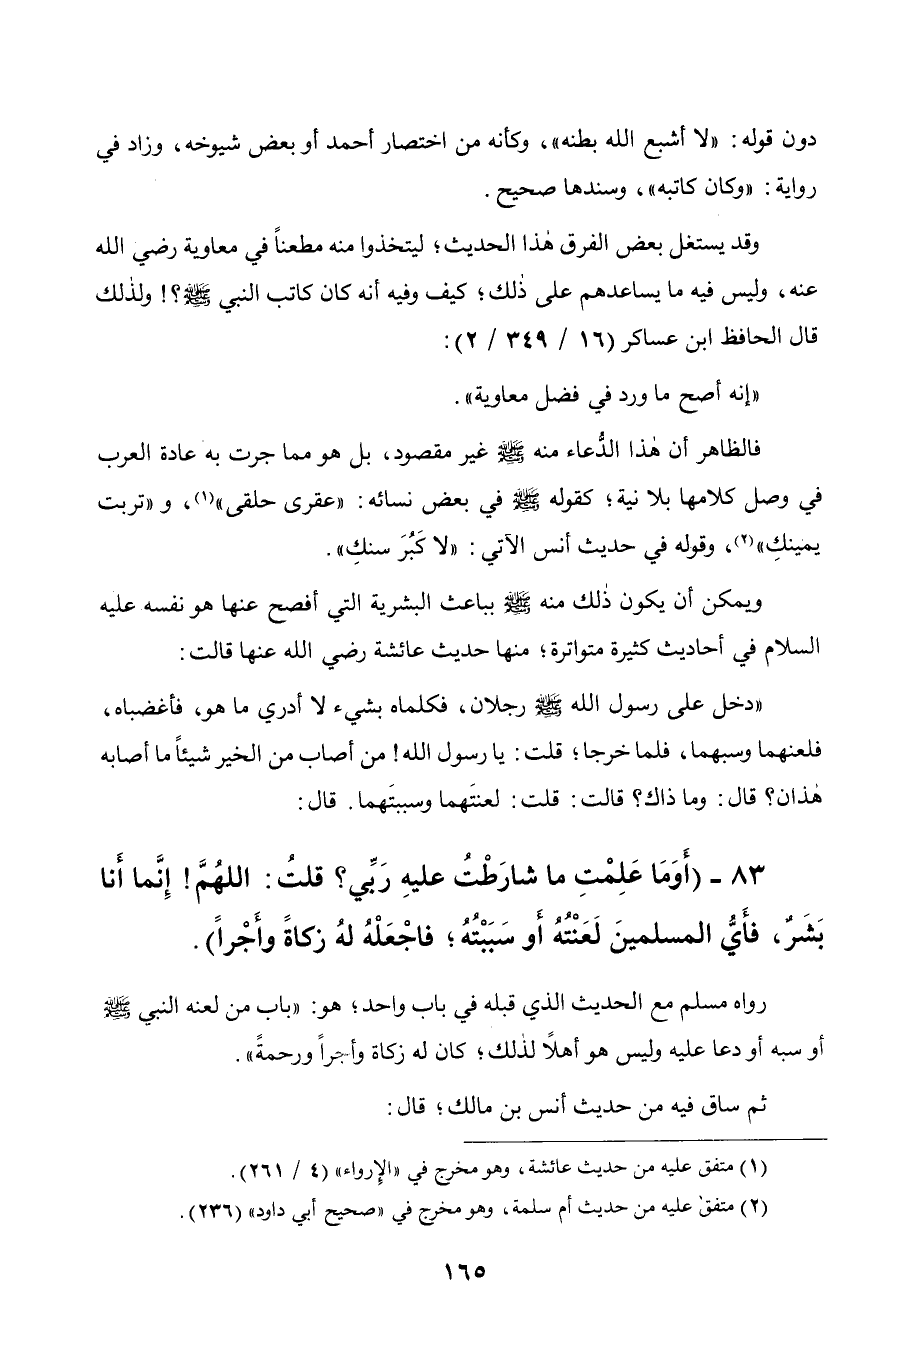 دون قوله: «لا أشبع الله بطنه»، وكأنه من اختصار أحمد أو بعض شيوخه، وزاد في
رواية: «وكان كاتبه»، وسندها صحيح.
وقد يستغل بعض الفرق هٰذا الحديث؛ ليتخذوا منه مطعناً في معاوية رضي الله
عنه، وليس فيه ما يساعدهم على ذٰلك؛ كيف وفيه أنه كان كاتب النبي ﷺ؟! ولذٰلك
قال الحافظ ابن عساكر (١٦ / ٣٤٩ / ٢):
«إنه أصح ما ورد في فضل معاوية».
فالظاهر أن هٰذا الدُّعاء منه ﷺ غير مقصود، بل هو مما جرت به عادة العرب
في وصل كلامها بلا نية؛ كقوله ﷺ في بعض نسائه: «عقرى حلقى»(١)، و «تربت
يمينكِ»(٢)، وقوله في حديث أنس الآتي: «لا كَبُرَ سنكِ».
ويمكن أن يكون ذٰلك منه ﷺ بباعث البشرية التي أفصح عنها هو نفسه عليه
السلام في أحاديث كثيرة متواترة؛ منها حديث عائشة رضي الله عنها قالت:
«دخل على رسول الله ﷺ رجلان، فكلماه بشيء لا أدري ما هو، فأغضباه،
فلعنهما وسبهما، فلما خرجا؛ قلت: يا رسول الله! من أصاب من الخير شيئاً ما أصابه
هٰذان؟ قال: وما ذاك؟ قالت: قلت: لعنتَهما وسببتَهما. قال:
٨٣ - (أَوَمَا عَلِمْتِ ما شارَطْتُ عليهِ رَبِّي؟ قلتُ: اللهُمَّ! إِنَّما أَنا
بَشَرٌ، فأَيُّ المسلمينَ لَعَنْتُهُ أَو سَبَبْتُهُ؛ فاجْعَلْهُ لهُ زكاةً وأَجْراً).
رواه مسلم مع الحديث الذي قبله في باب واحد؛ هو: «باب من لعنه النبي ﷺ
أو سبه أو دعا عليه وليس هو أهلاً لذٰلك؛ كان له زكاة وأجراً ورحمةً».
ثم ساق فيه من حديث أنس بن مالك؛ قال:
(١) متفق عليه من حديث عائشة، وهو مخرج في «الإرواء» (٤ / ٢٦١).
(٢) متفق عليه من حديث أم سلمة، وهو مخرج في «صحيح أبي داود» (٢٣٦).
١٦٥